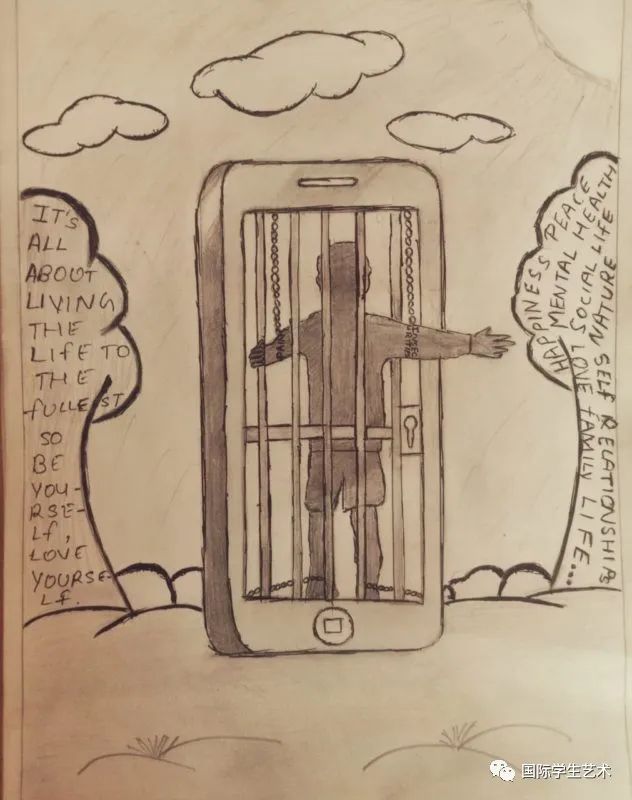 IT'S
ALL
ABOUT
LIVING
THE
LIFE TO
THE
fULLEST
SO
BE
YOU-
RSE-
Lf,
LOVE
YOURSE-
Lf.
PAIN
HAPPINESS PEACE
MENTAL HEALTH
SOCIAL LIFE
NATURE SELF RELATIONSHIPS
LOVE FAMILY LIFE...
国际学生艺术